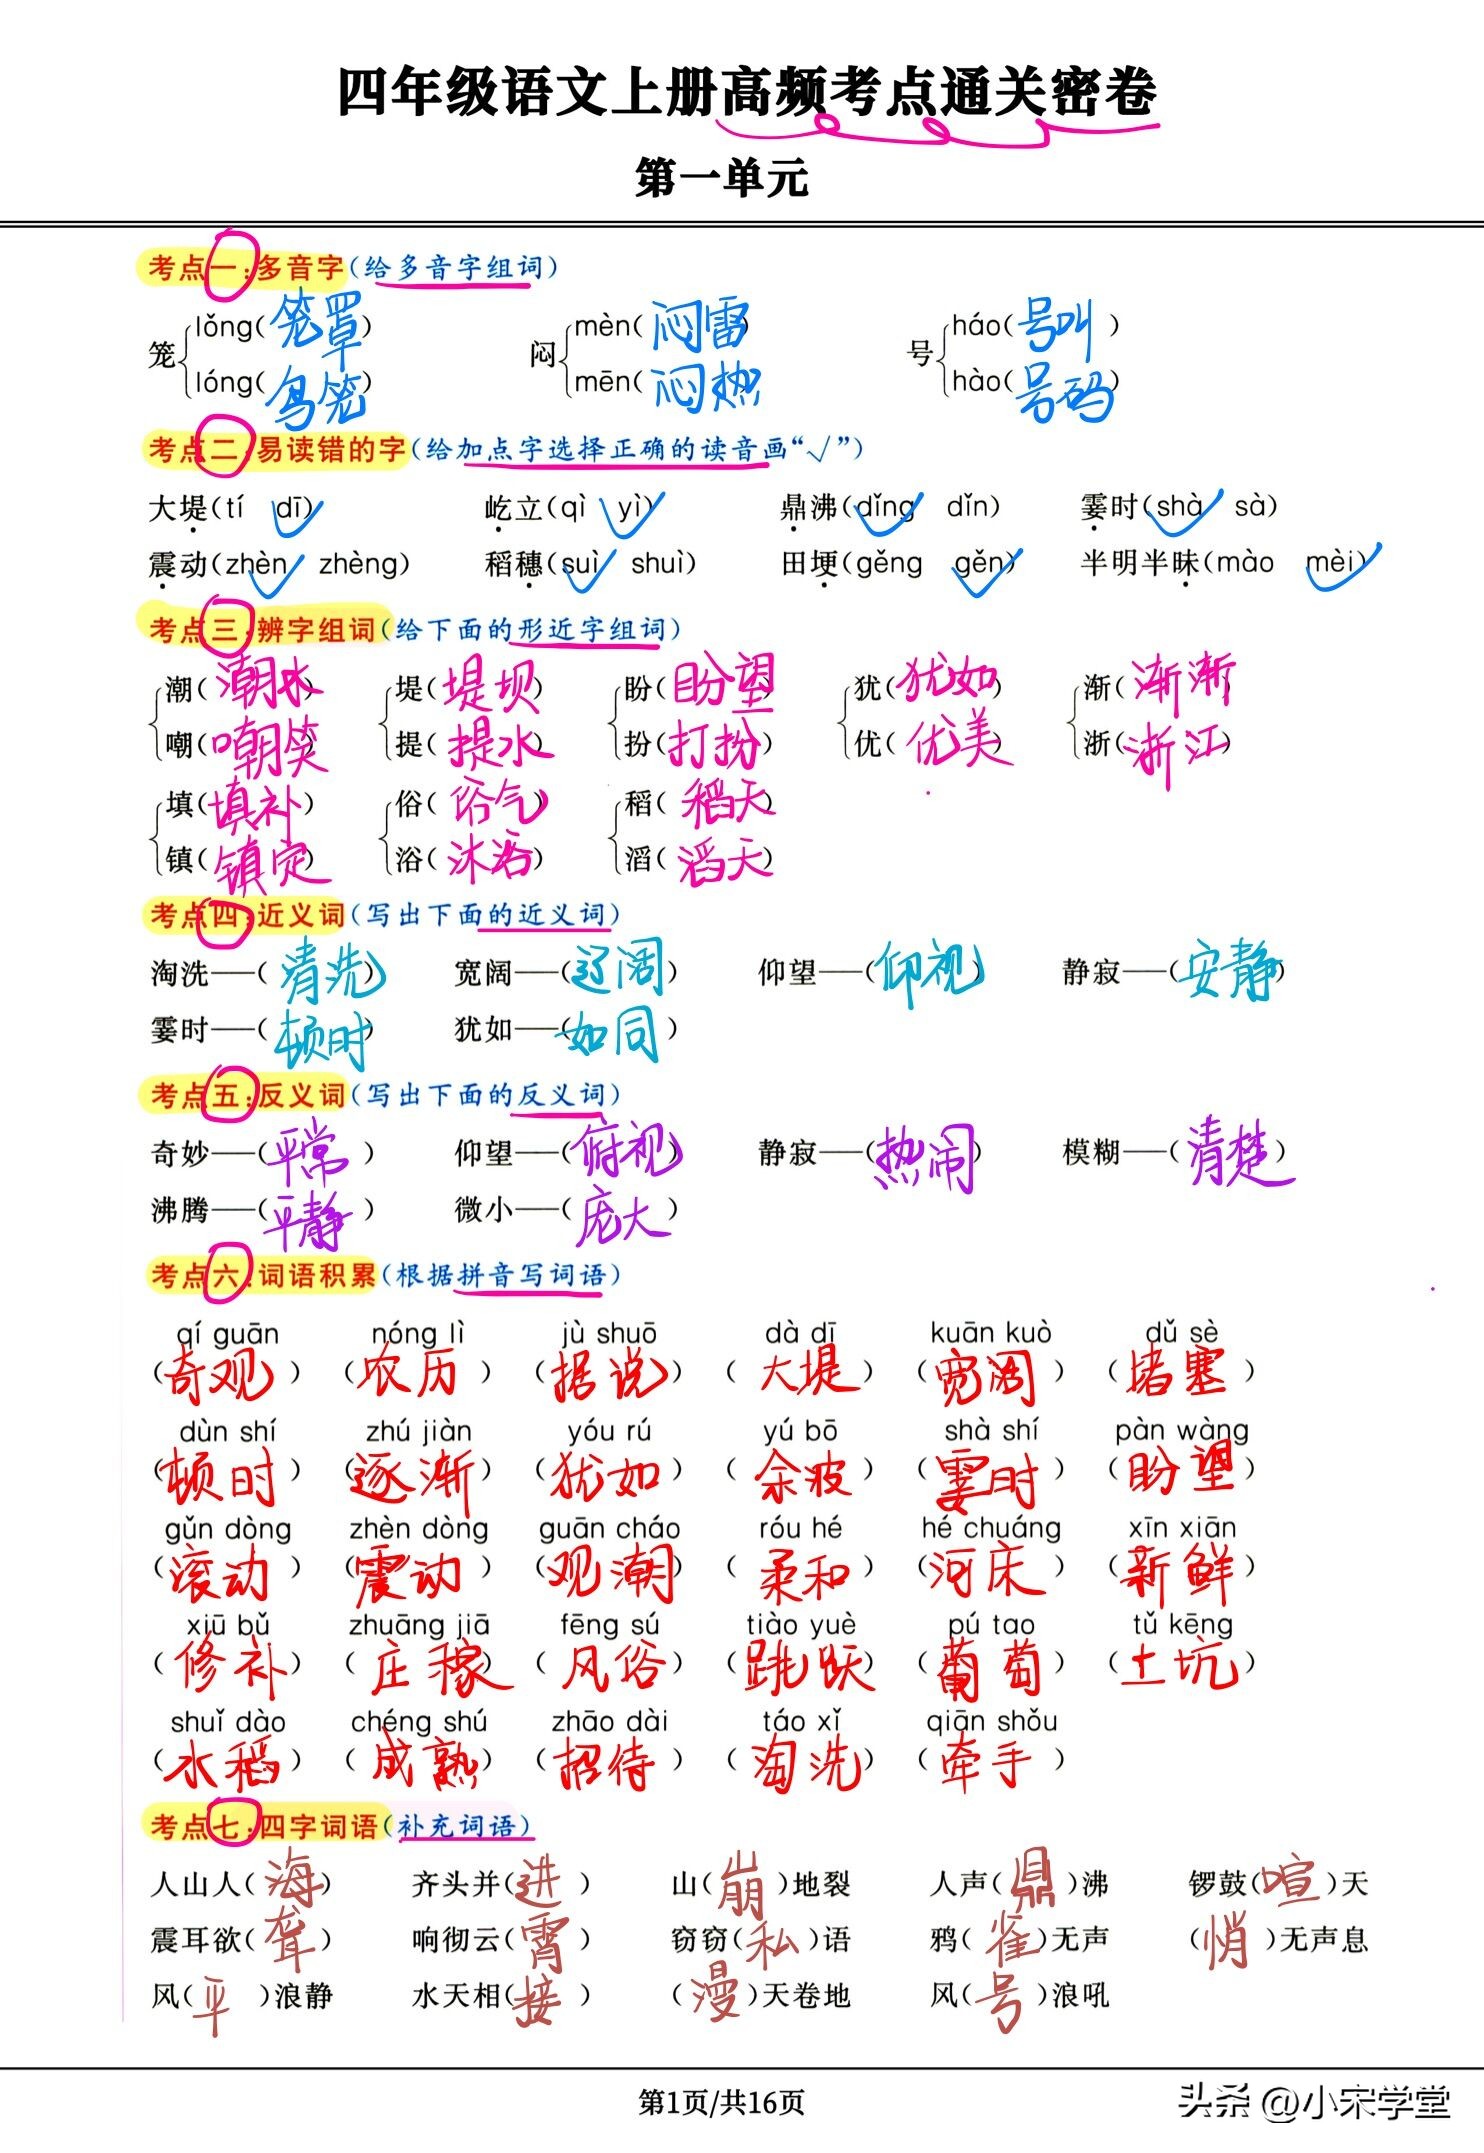 四年级语文上册高频考点通关密卷
第一单元
考点一:多音字(给多音字组词)
笼 lǒng(笼罩) 闷 mèn(闷雷) 号 háo(号叫)
lóng(鸟笼) mēn(闷热) hào(号码)
考点二:易读错的字(给加点字选择正确的读音画“√”)
大堤(tí dī√) 屹立(qì yì√) 鼎沸(dǐng√ dǐn) 霎时(shà√ sà)
震动(zhèn√ zhèng) 稻穗(suì√ shuì) 田埂(gěng gěn√) 半明半昧(mào mèi√)
考点三:辨字组词(给下面的形近字组词)
潮(潮水) 堤(堤坝) 盼(盼望) 犹(犹如) 渐(渐渐)
嘲(嘲笑) 提(提水) 扮(打扮) 优(优美) 浙(浙江)
填(填补) 俗(俗气) 稻(稻天)
镇(镇定) 浴(沐浴) 滔(滔天)
考点四:近义词(写出下面的近义词)
淘洗——(清洗) 宽阔——(辽阔) 仰望——(仰视) 静寂——(安静)
霎时——(顿时) 犹如——(如同)
考点五:反义词(写出下面的反义词)
奇妙——(平常) 仰望——(俯视) 静寂——(热闹) 模糊——(清楚)
沸腾——(平静) 微小——(庞大)
考点六:词语积累(根据拼音写词语)
qí guān nóng lì jù shuō dà dī kuān kuò dǔ sè
(奇观) (农历) (据说) (大堤) (宽阔) (堵塞)
dùn shí zhú jiàn yóu rú yú bō shà shí pàn wàng
(顿时) (逐渐) (犹如) (余波) (霎时) (盼望)
gǔn dòng zhèn dòng guān cháo róu hé hé chuáng xīn xiān
(滚动) (震动) (观潮) (柔和) (河床) (新鲜)
xiū bǔ zhuāng jiā fēng sú tiào yuè pú tao tǔ kēng
(修补) (庄稼) (风俗) (跳跃) (葡萄) (土坑)
shuǐ dào chéng shú zhāo dài táo xǐ qiān shǒu
(水稻) (成熟) (招待) (淘洗) (牵手)
考点七:四字词语(补充词语)
人山人(海) 齐头并(进) 山(崩)地裂 人声(鼎)沸 锣鼓(喧)天
震耳欲(聋) 响彻云(霄) 窃窃(私)语 鸦(雀)无声 (悄)无声息
风(平)浪静 水天相(接) (漫)天卷地 风(号)浪吼
第1页/共16页
头条 @小宋学堂